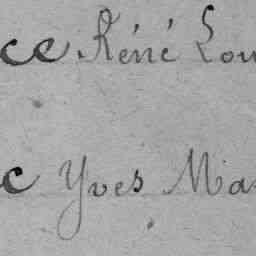 ce René Lou
c Yves Ma